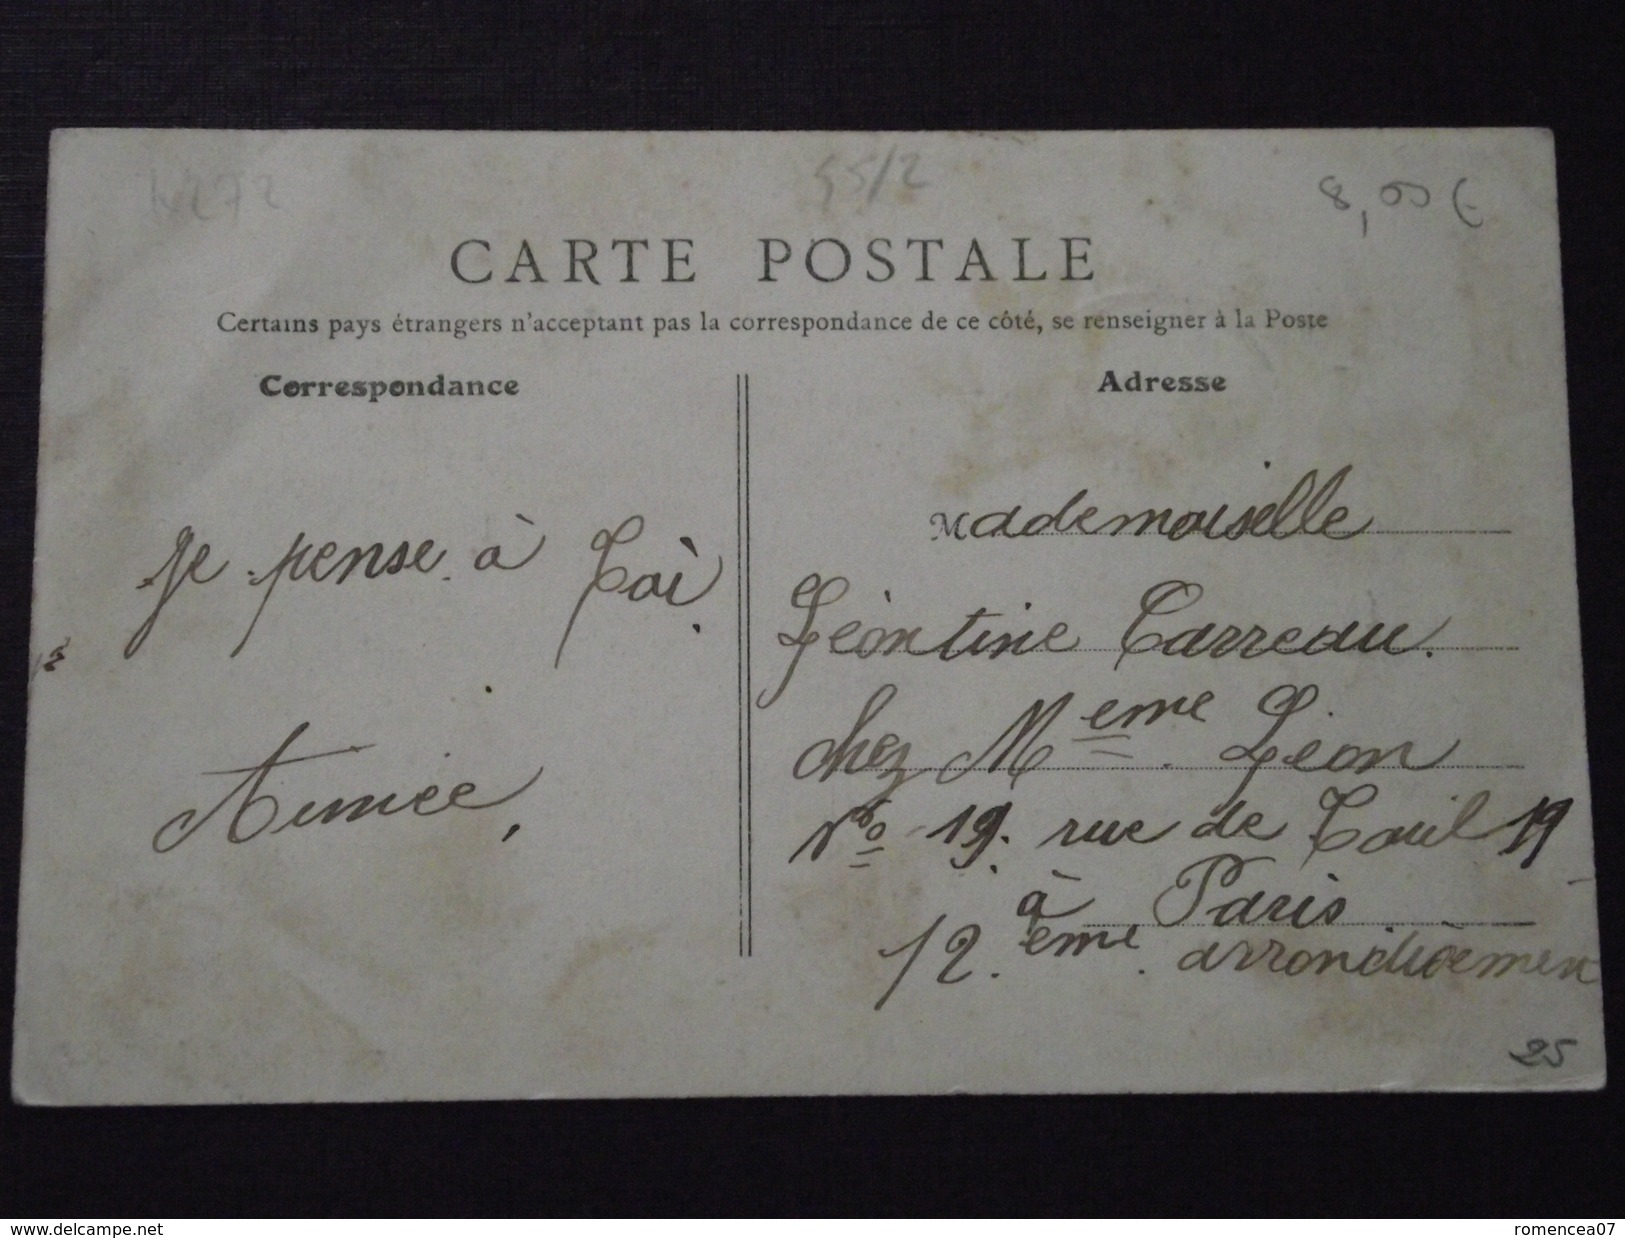 45/2
8,00 €
CARTE POSTALE
Certains pays étrangers n'acceptant pas la correspondance de ce côté, se renseigner à la Poste
Correspondance
Je pense à Toi.
Aimée,
Adresse
Mademoiselle
Léontine Carreau.
chez Meme. Léon
No 19. rue de Toul 19
à Paris
12.eme. arrondissement
25
www.delcampe.net
romencea07